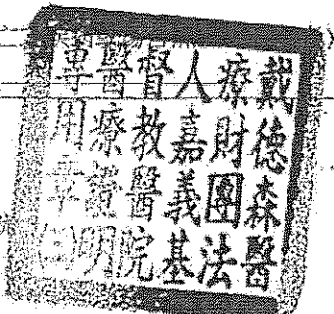 戴德森醫
療財團法
人嘉義基
督教醫院
醫療證明
專用章